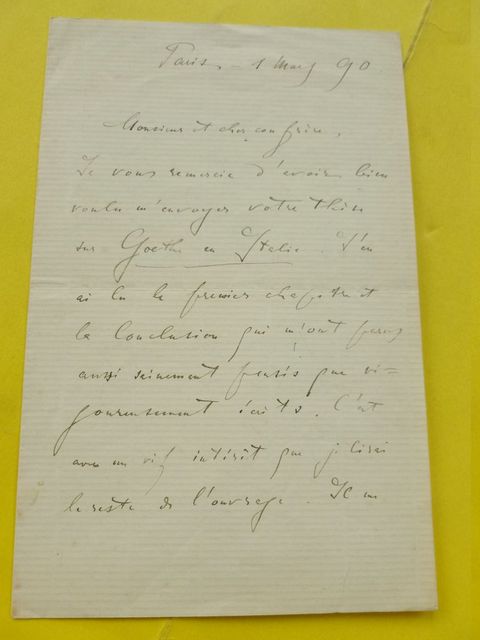 Paris - 1 Mars 90.
Monsieur et cher confrère,
Je vous remercie d'avoir bien
voulu m'envoyer votre thèse
sur Goethe en Italie. J'en
ai lu le premier chapitre et
la Conclusion qui m'ont paru
aussi sainement pensés que vi=
goureusement écrits. C'est
avec un vif intérêt que je lirai
le reste de l'ouvrage. Il me